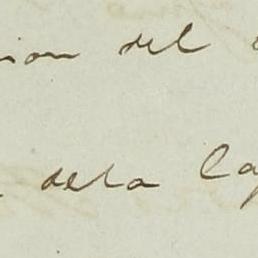 ion del
de la Ca